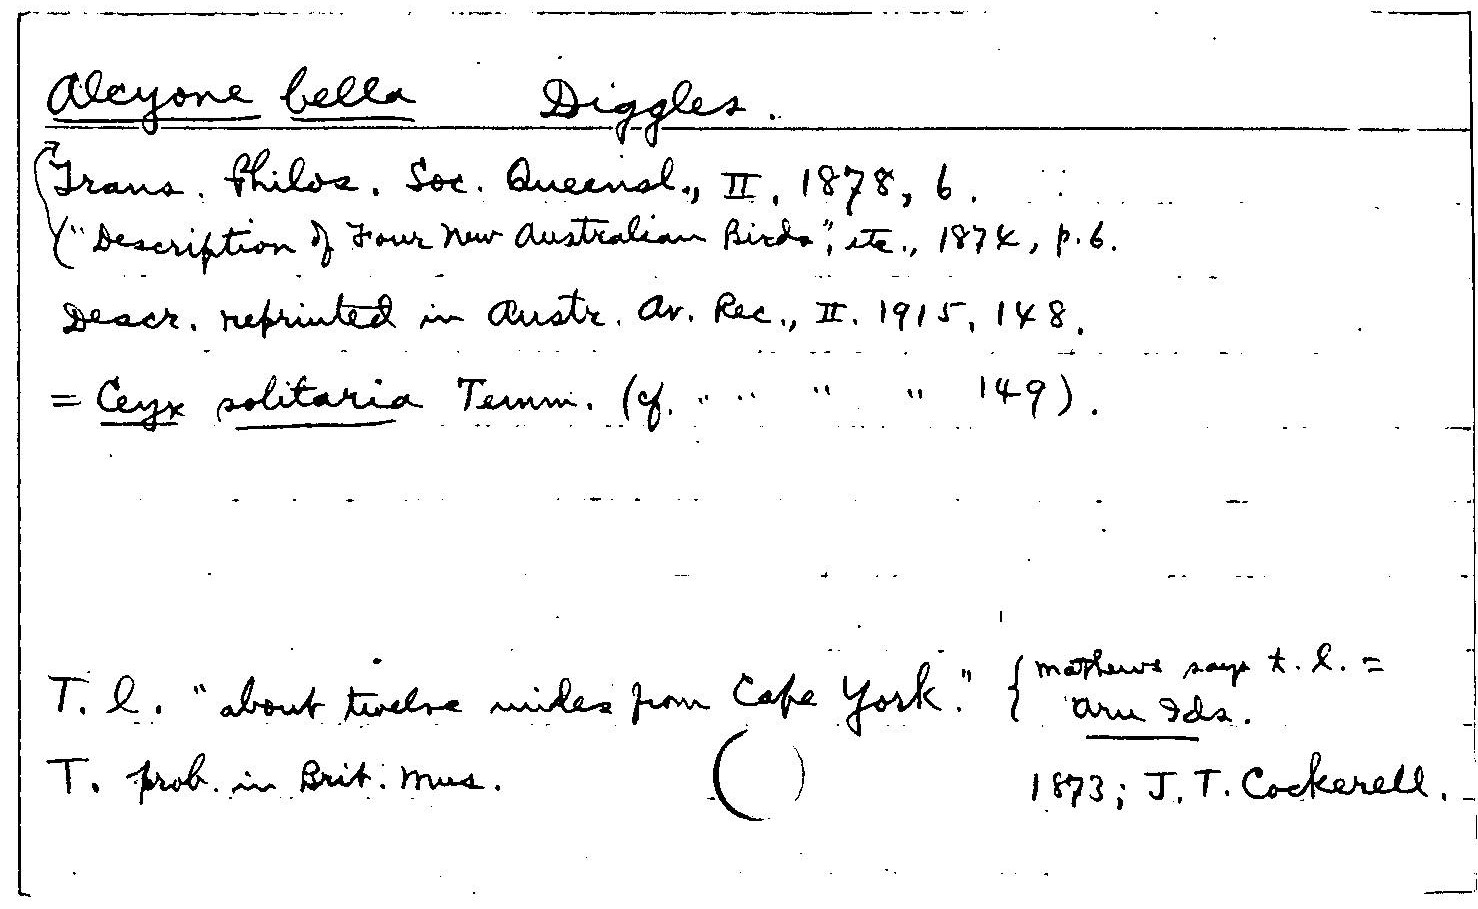 Alcyone bella Diggles.
Trans. Philos. Soc. Queensl., II, 1878, 6.
("Description of Four New Australian Birds", etc., 1874, p. 6.
Descr. reprinted in Austr. Av. Rec., II. 1915, 148.
= Ceyx solitaria Temm. (cf. " " " " 149).
T. l. "about twelve miles from Cape York." { Mathews says t. l. =
Aru Ids.
T. prob. in Brit. Mus. ( ) 1873; J. T. Cockerell.